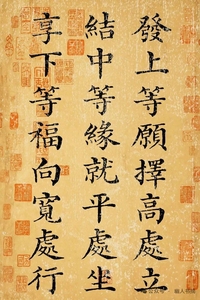 發上等願擇高處立
結中等緣就平處坐
享下等福向寬處行